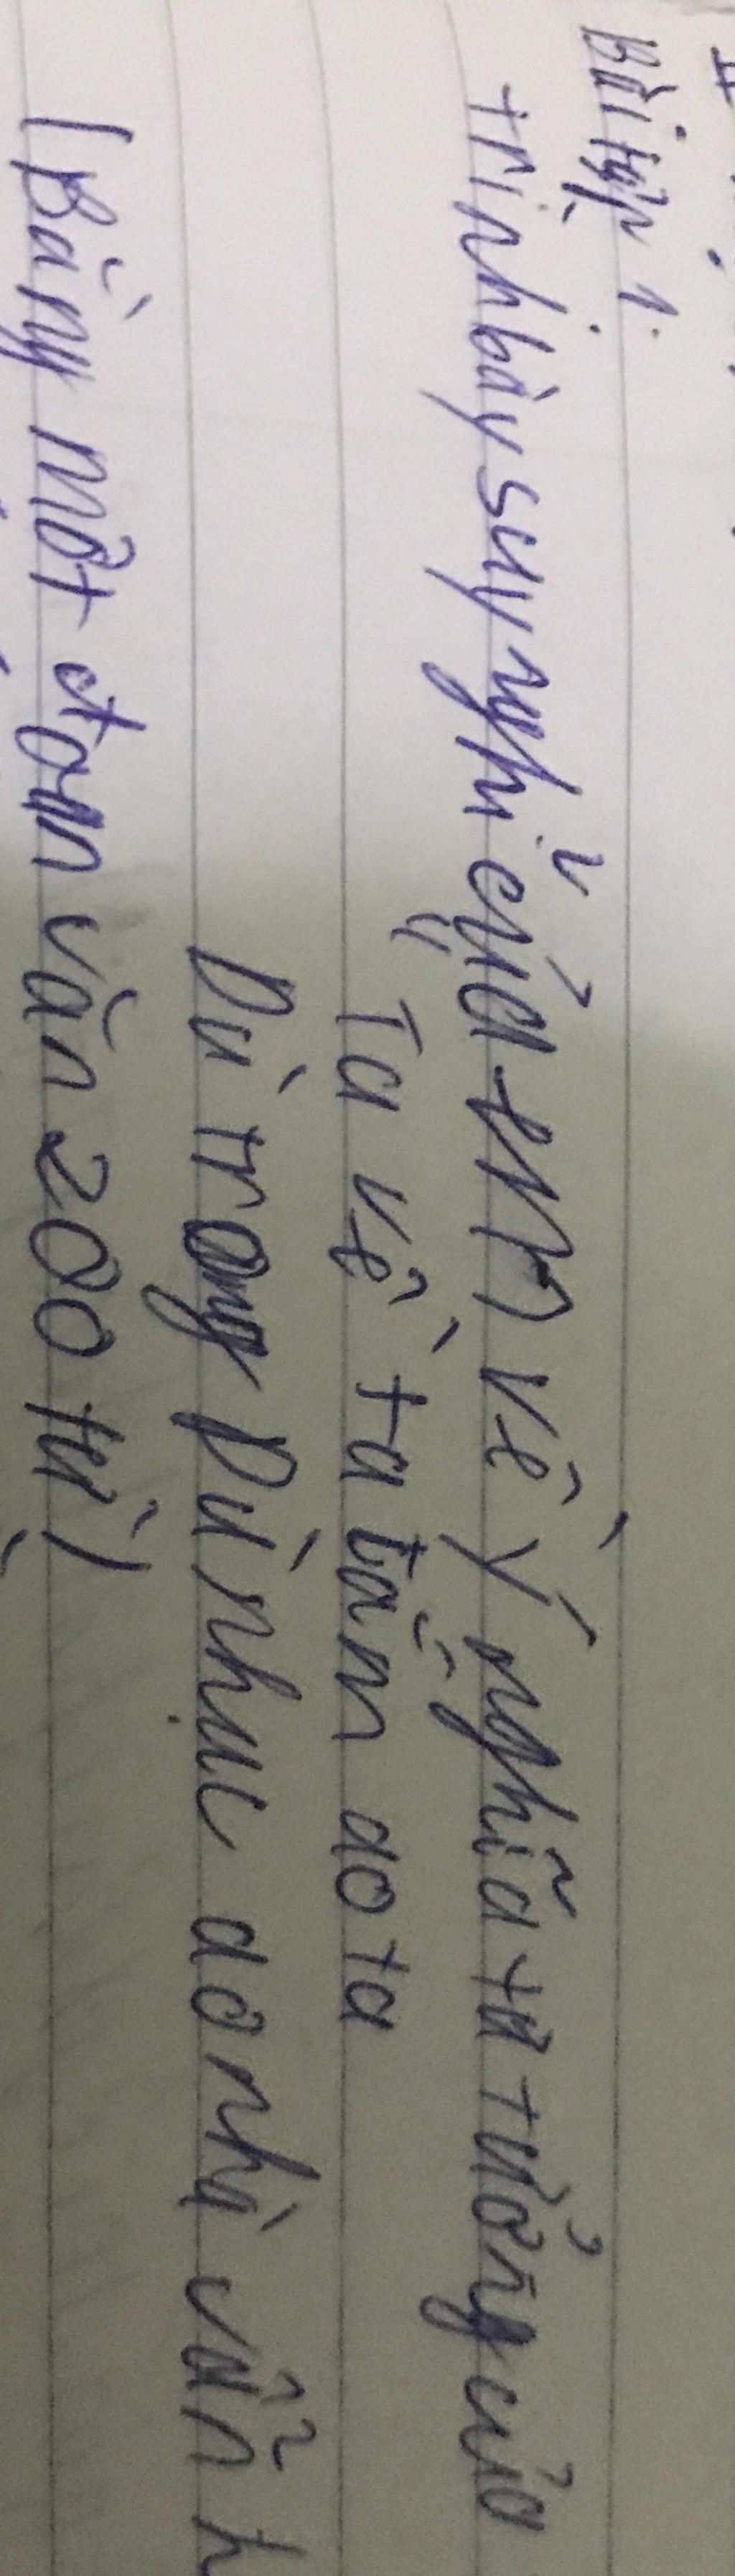 Bài tập 1:
trình bày suy nghĩ của em về ý nghĩa tư tưởng của
"Ta về ta tắm ao ta
Dù trong Dù nhục ao nhà vẫn h
(Bằng một đoạn văn 200 từ)